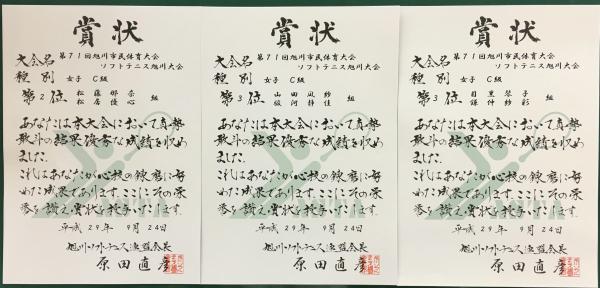 賞状
大会名 第71回旭川市民体育大会
ソフトテニス旭川大会
種別 女子 C級
第2位 松藤那奈 組
松居優心
あなたは本大会において真摯
敢斗の結果優秀な成績を収め
ました
これはあなたが心技の錬磨に努
めた成果であります ここにその栄
誉を讃え賞状を授与いたします
平成29年 9月24日
旭川ソフトテニス連盟会長
原田直彦
賞状
大会名 第71回旭川市民体育大会
ソフトテニス旭川大会
種別 女子 C級
第3位 山田凪紗 組
駿河静佳
あなたは本大会において真摯
敢斗の結果優秀な成績を収め
ました
これはあなたが心技の錬磨に努
めた成果であります ここにその栄
誉を讃え賞状を授与いたします
平成29年 9月24日
旭川ソフトテニス連盟会長
原田直彦
賞状
大会名 第71回旭川市民体育大会
ソフトテニス旭川大会
種別 女子 C級
第3位 目黒琴子 組
鎌仲紗彩
あなたは本大会において真摯
敢斗の結果優秀な成績を収め
ました
これはあなたが心技の錬磨に努
めた成果であります ここにその栄
誉を讃え賞状を授与いたします
平成29年 9月24日
旭川ソフトテニス連盟会長
原田直彦